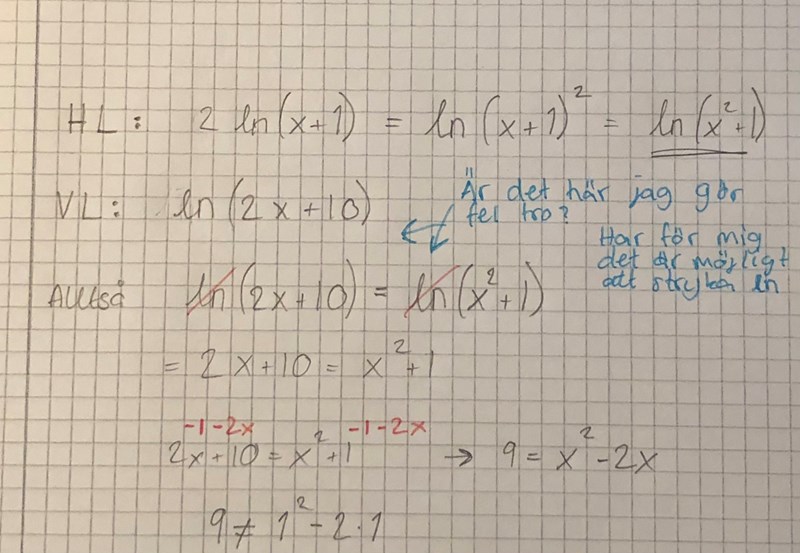 HL: 2 ln(x+1) = ln(x+1)² = ln(x²+1)
VL: ln(2x+10)
Är det här jag gör
fel tro?
Har för mig
det är möjligt
att stryka ln
Alltså ln(2x+10) = ln(x²+1)
= 2x+10 = x²+1
-1-2x -1-2x
2x+10 = x²+1 → 9 = x²-2x
9 ≠ 1²-2·1